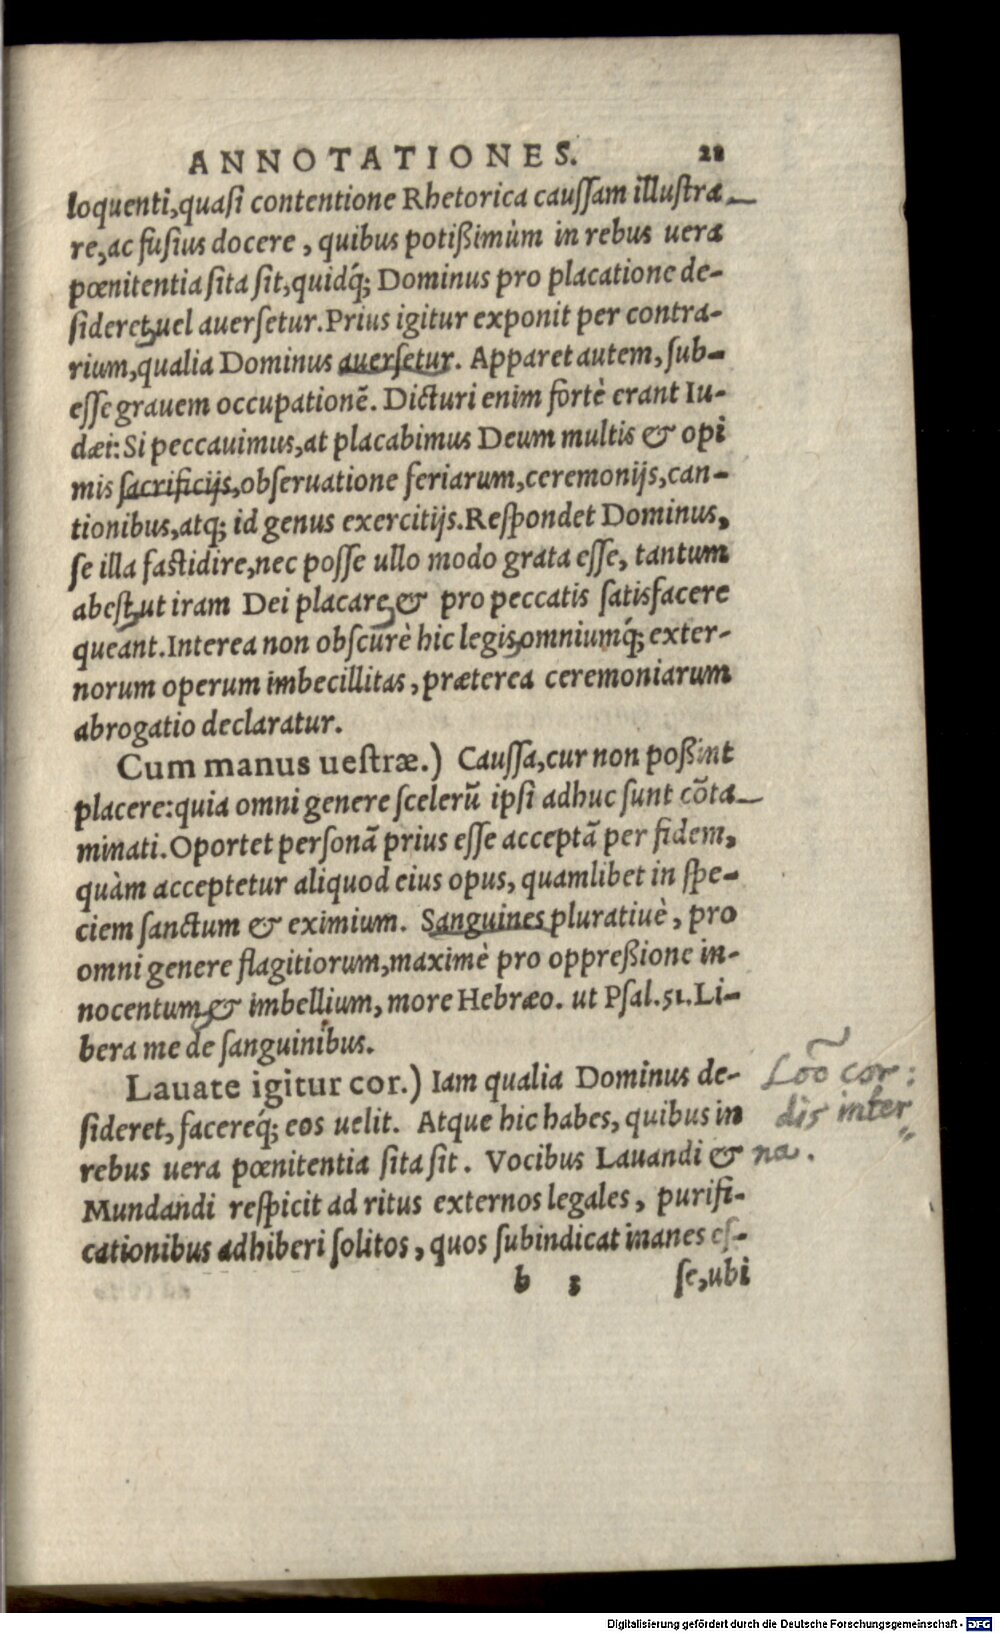 ANNOTATIONES. 28
loquenti, quasi contentione Rhetorica caussam illustra-
re, ac fusius docere, quibus potißimùm in rebus uera
pœnitentia sita sit, quidq́; Dominus pro placatione de-
sideret, uel auersetur. Prius igitur exponit per contra-
rium, qualia Dominus auersetur. Apparet autem, sub-
esse grauem occupationẽ. Dicturi enim fortè erant Iu-
dæi: Si peccauimus, at placabimus Deum multis & opi
mis sacrificijs, obseruatione feriarum, ceremonijs, can-
tionibus, atq; id genus exercitijs. Respondet Dominus,
se illa fastidire, nec posse ullo modo grata esse, tantum
abest, ut iram Dei placare, & pro peccatis satisfacere
queant. Interea non obscurè hic legis, omniumq́; exter-
norum operum imbecillitas, præterea ceremoniarum
abrogatio declaratur.
Cum manus uestræ.) Caussa, cur non poßint
placere: quia omni genere scelerũ ipsi adhuc sunt cõta-
minati. Oportet personã prius esse acceptã per fidem,
quàm acceptetur aliquod eius opus, quamlibet in spe-
ciem sanctum & eximium. Sanguines pluratiuè, pro
omni genere flagitiorum, maximè pro oppreßione in-
nocentum, & imbellium, more Hebræo. ut Psal. 51. Li-
bera me de sanguinibus.
Lauate igitur cor.) Iam qualia Dominus de-
sideret, facereq́; eos uelit. Atque hic habes, quibus in
rebus uera pœnitentia sita sit. Vocibus Lauandi &
Mundandi respicit ad ritus externos legales, purifi-
cationibus adhiberi solitos, quos subindicat inanes es-
b 3 se, ubi
cor:
dis inter
na.
Digitalisierung gefördert durch die Deutsche Forschungsgemeinschaft - DFG